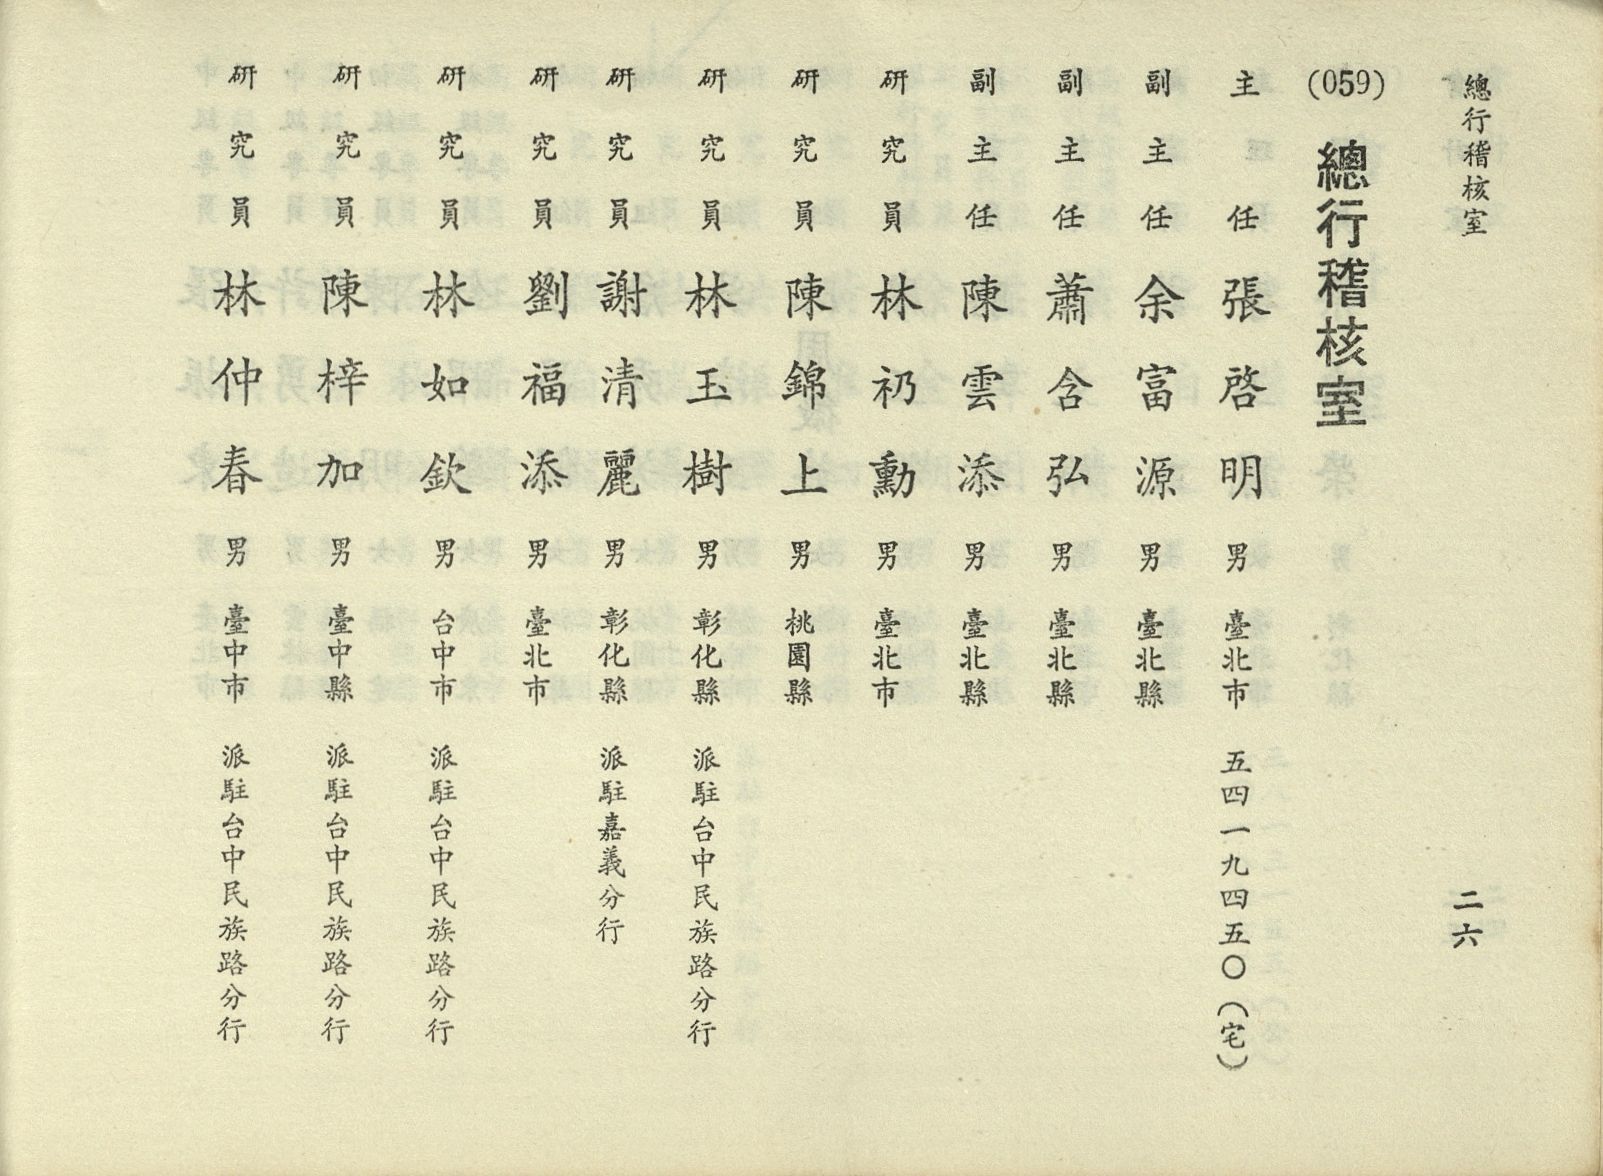 總行稽核室
二六
(059)
總行稽核室
主任 張啓明 男 臺北市 五四一九四五〇(宅)
副主任 余富源 男 臺北縣
副主任 蕭含弘 男 臺北縣
副主任 陳雲添 男 臺北縣
研究員 林礽勳 男 臺北市
研究員 陳錦上 男 桃園縣
研究員 林玉樹 男 彰化縣 派駐台中民族路分行
研究員 謝清麗 男 彰化縣 派駐嘉義分行
研究員 劉福添 男 臺北市
研究員 林如欽 男 台中市 派駐台中民族路分行
研究員 陳梓加 男 臺中縣 派駐台中民族路分行
研究員 林仲春 男 臺中市 派駐台中民族路分行